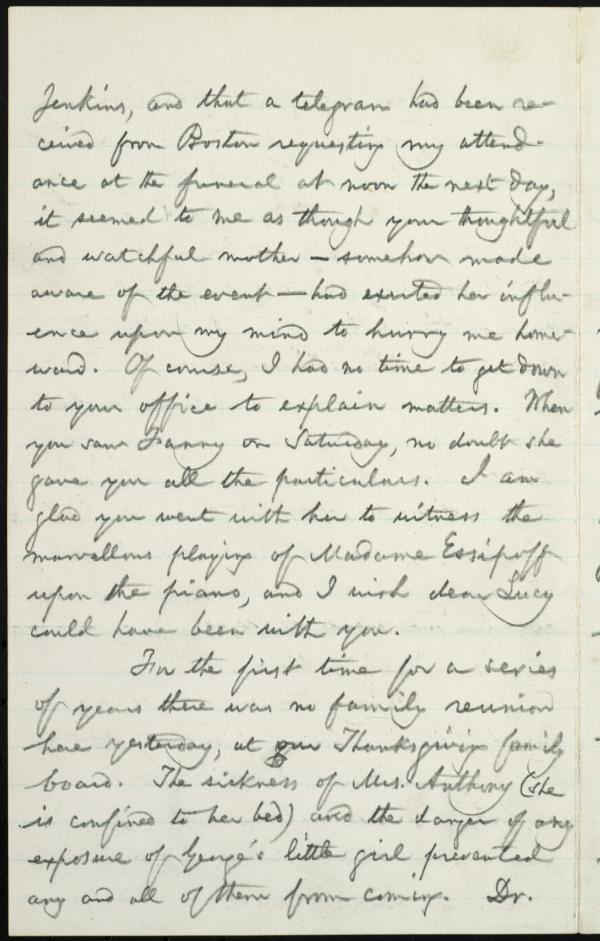 Jenkins, and that a telegram had been re-
ceived from Boston requesting my attend-
ance at the funeral at noon the next day,
it seemed to me as though your thoughtful
and watchful mother — somehow made
aware of the event — had exerted her influ-
ence upon my mind to hurry me home-
ward. Of course, I had no time to get down
to your office to explain matters. When
you saw Fanny on Saturday, no doubt she
gave you all the particulars. I am
glad you went with her to witness the
marvellous playing of Madame Essipoff
upon the piano, and I wish dear Lucy
could have been with you.
For the first time for a series
of years there was no family reunion
here yesterday, at our Thanksgiving family
board. The sickness of Mrs. Anthony (she
is confined to her bed) and the danger of any
exposure of George's little girl prevented
any and all of them from coming. Dr.